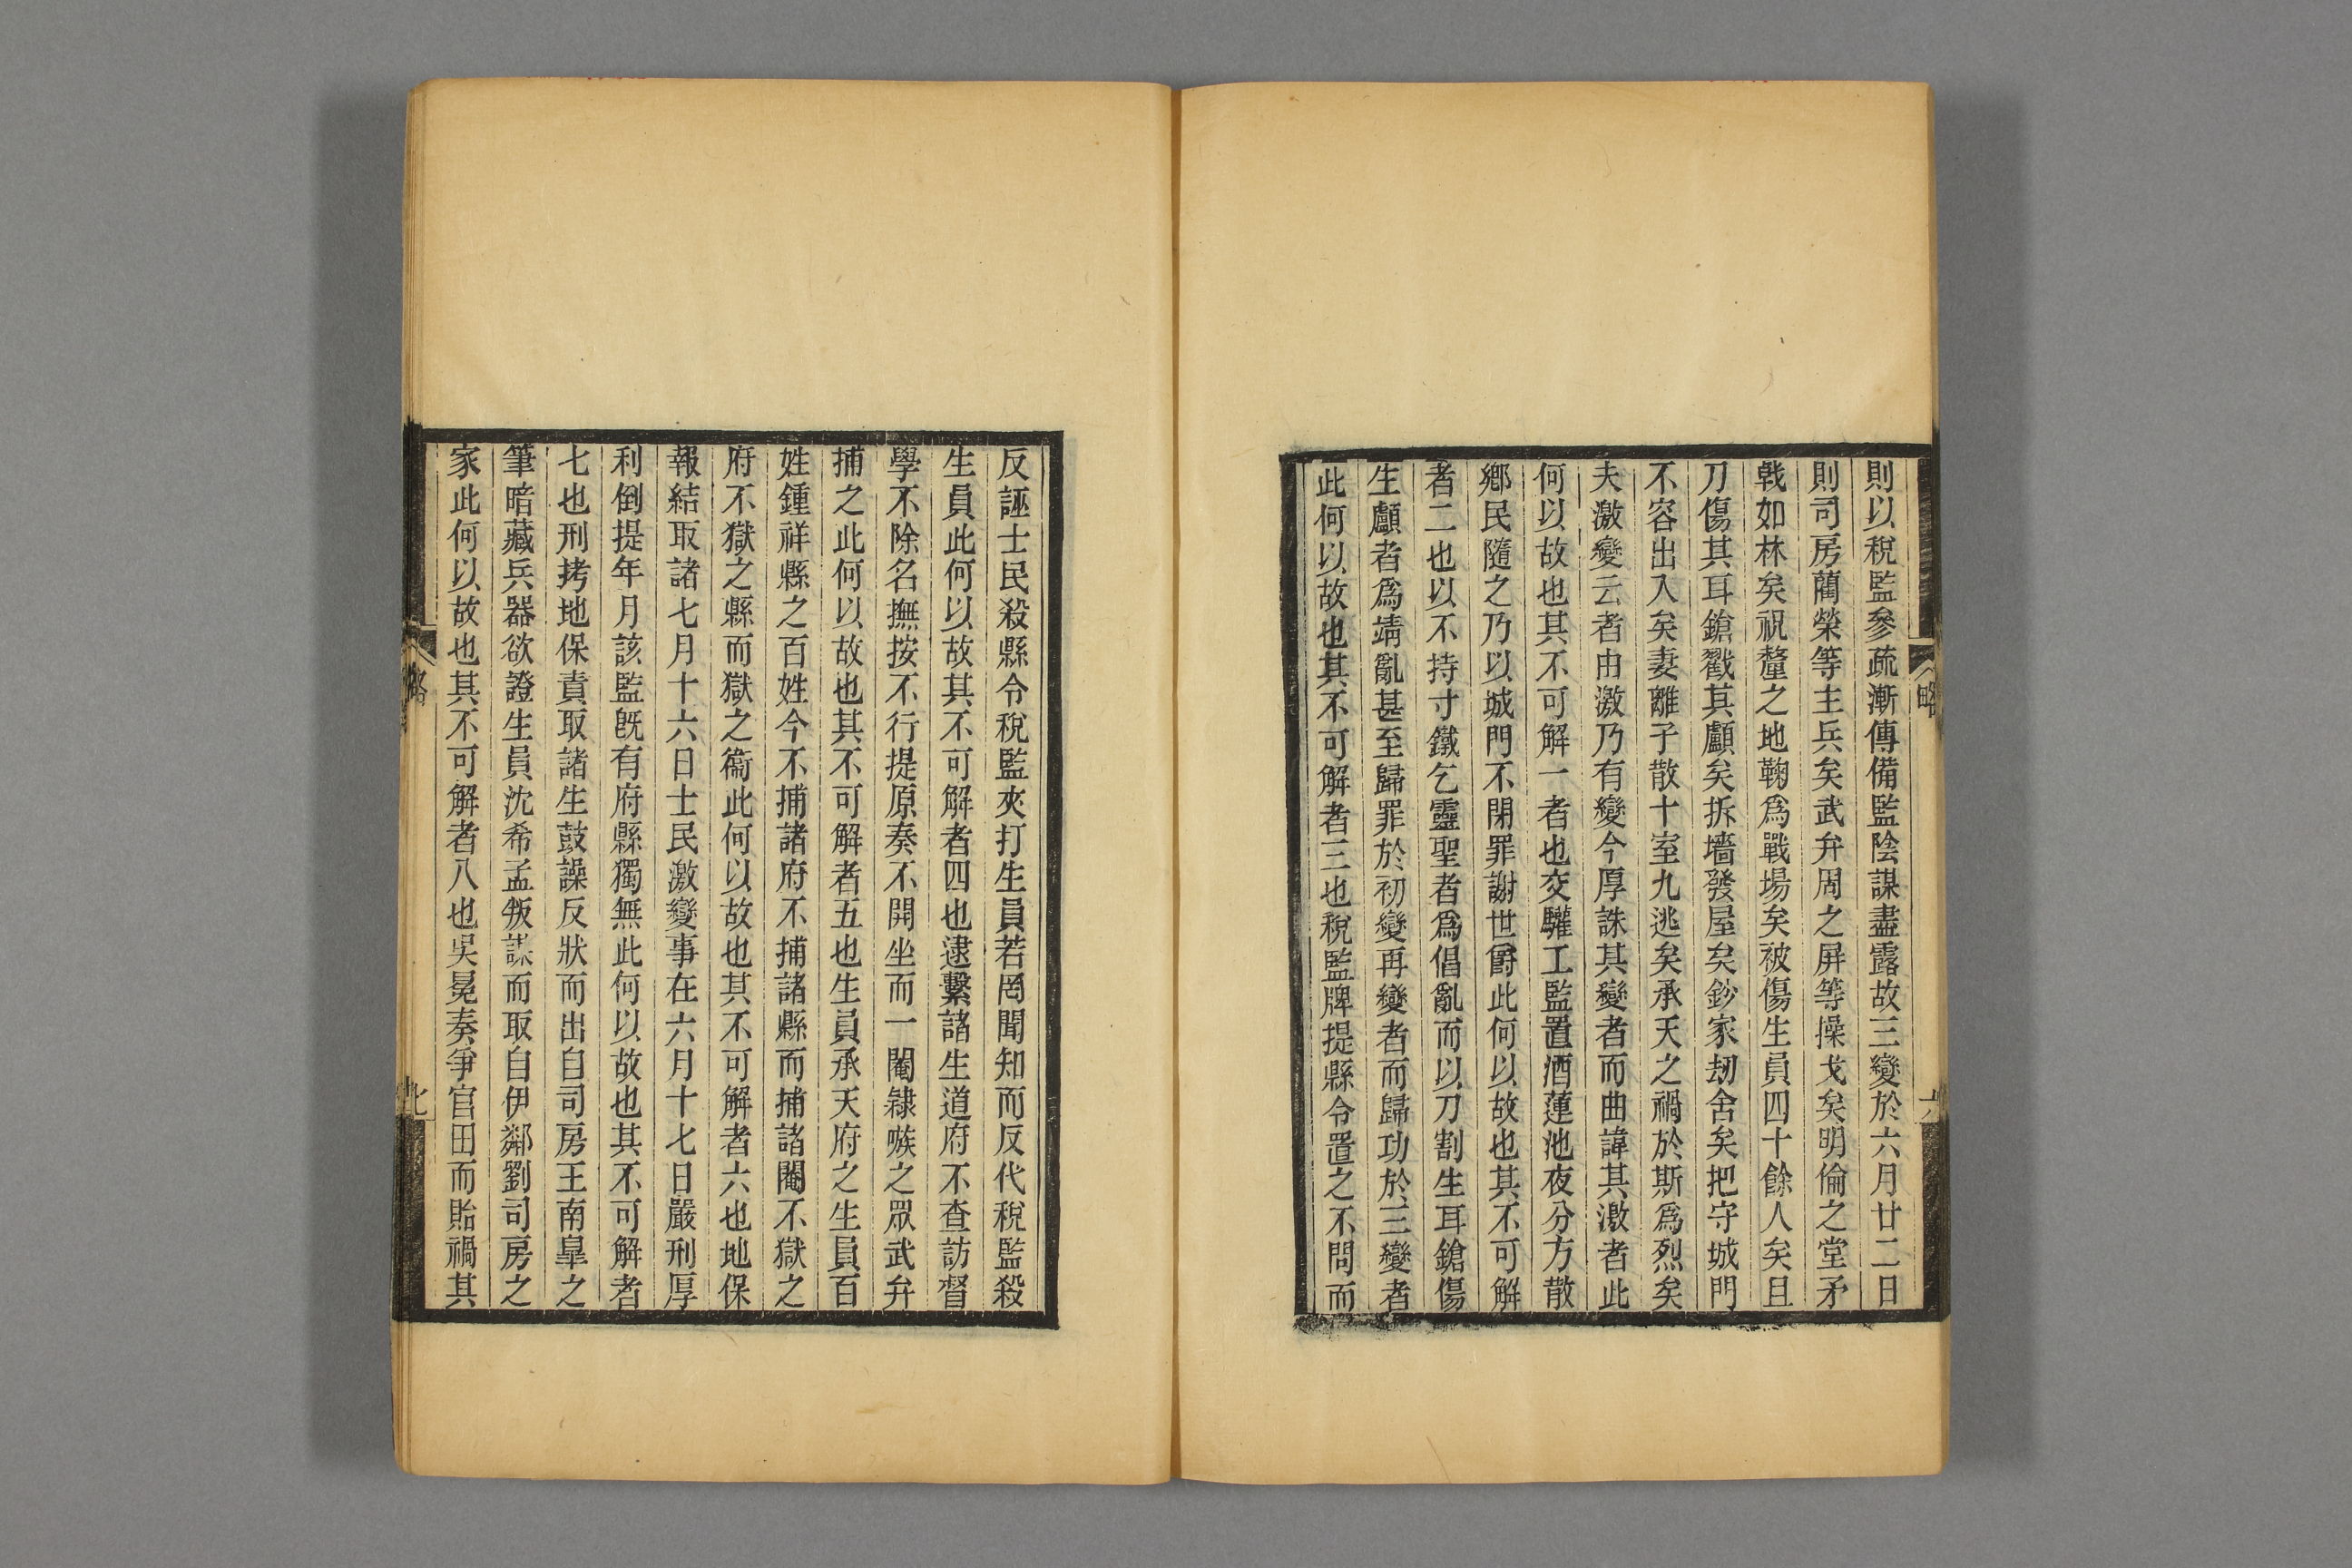 則以稅監參疏漸傳備監陰謀盡露故三變於六月廿二日
則司房藺榮等主兵矣武弁周之屏等操戈矣明倫之堂矛
戟如林矣祝釐之地鞠爲戰場矣被傷生員四十餘人矣且
刀傷其耳鎗戳其顱矣拆墻發屋矣鈔家刼舍矣把守城門
不容出入矣妻離子散十室九逃矣承天之禍於斯爲烈矣
夫激變云者由激乃有變今厚誅其變者而曲諱其激者此
何以故也其不可解一者也交驩工監置酒蓮池夜分方散
鄉民隨之乃以城門不閉罪謝世爵此何以故也其不可解
者二也以不持寸鐵乞靈聖者爲倡亂而以刀割生耳鎗傷
生顱者爲靖亂甚至歸罪於初變再變者而歸功於三變者
此何以故也其不可解者三也稅監牌提縣令置之不問而
略
六
反誣士民殺縣令稅監夾打生員若罔聞知而反代稅監殺
生員此何以故其不可解者四也逮繫諸生道府不查訪督
學不除名撫按不行提原奏不開坐而一閹隸嗾之眾武弁
捕之此何以故也其不可解者五也生員承天府之生員百
姓鍾祥縣之百姓今不捕諸府不捕諸縣而捕諸閹不獄之
府不獄之縣而獄之衞此何以故也其不可解者六也地保
報結取諸七月十六日士民激變事在六月十七日嚴刑厚
利倒提年月該監旣有府縣獨無此何以故也其不可解者
七也刑拷地保責取諸生鼓譟反狀而出自司房王南臯之
筆暗藏兵器欲證生員沈希孟叛謀而取自伊鄰劉司房之
家此何以故也其不可解者八也吳晃奏爭官田而貽禍其
略
七